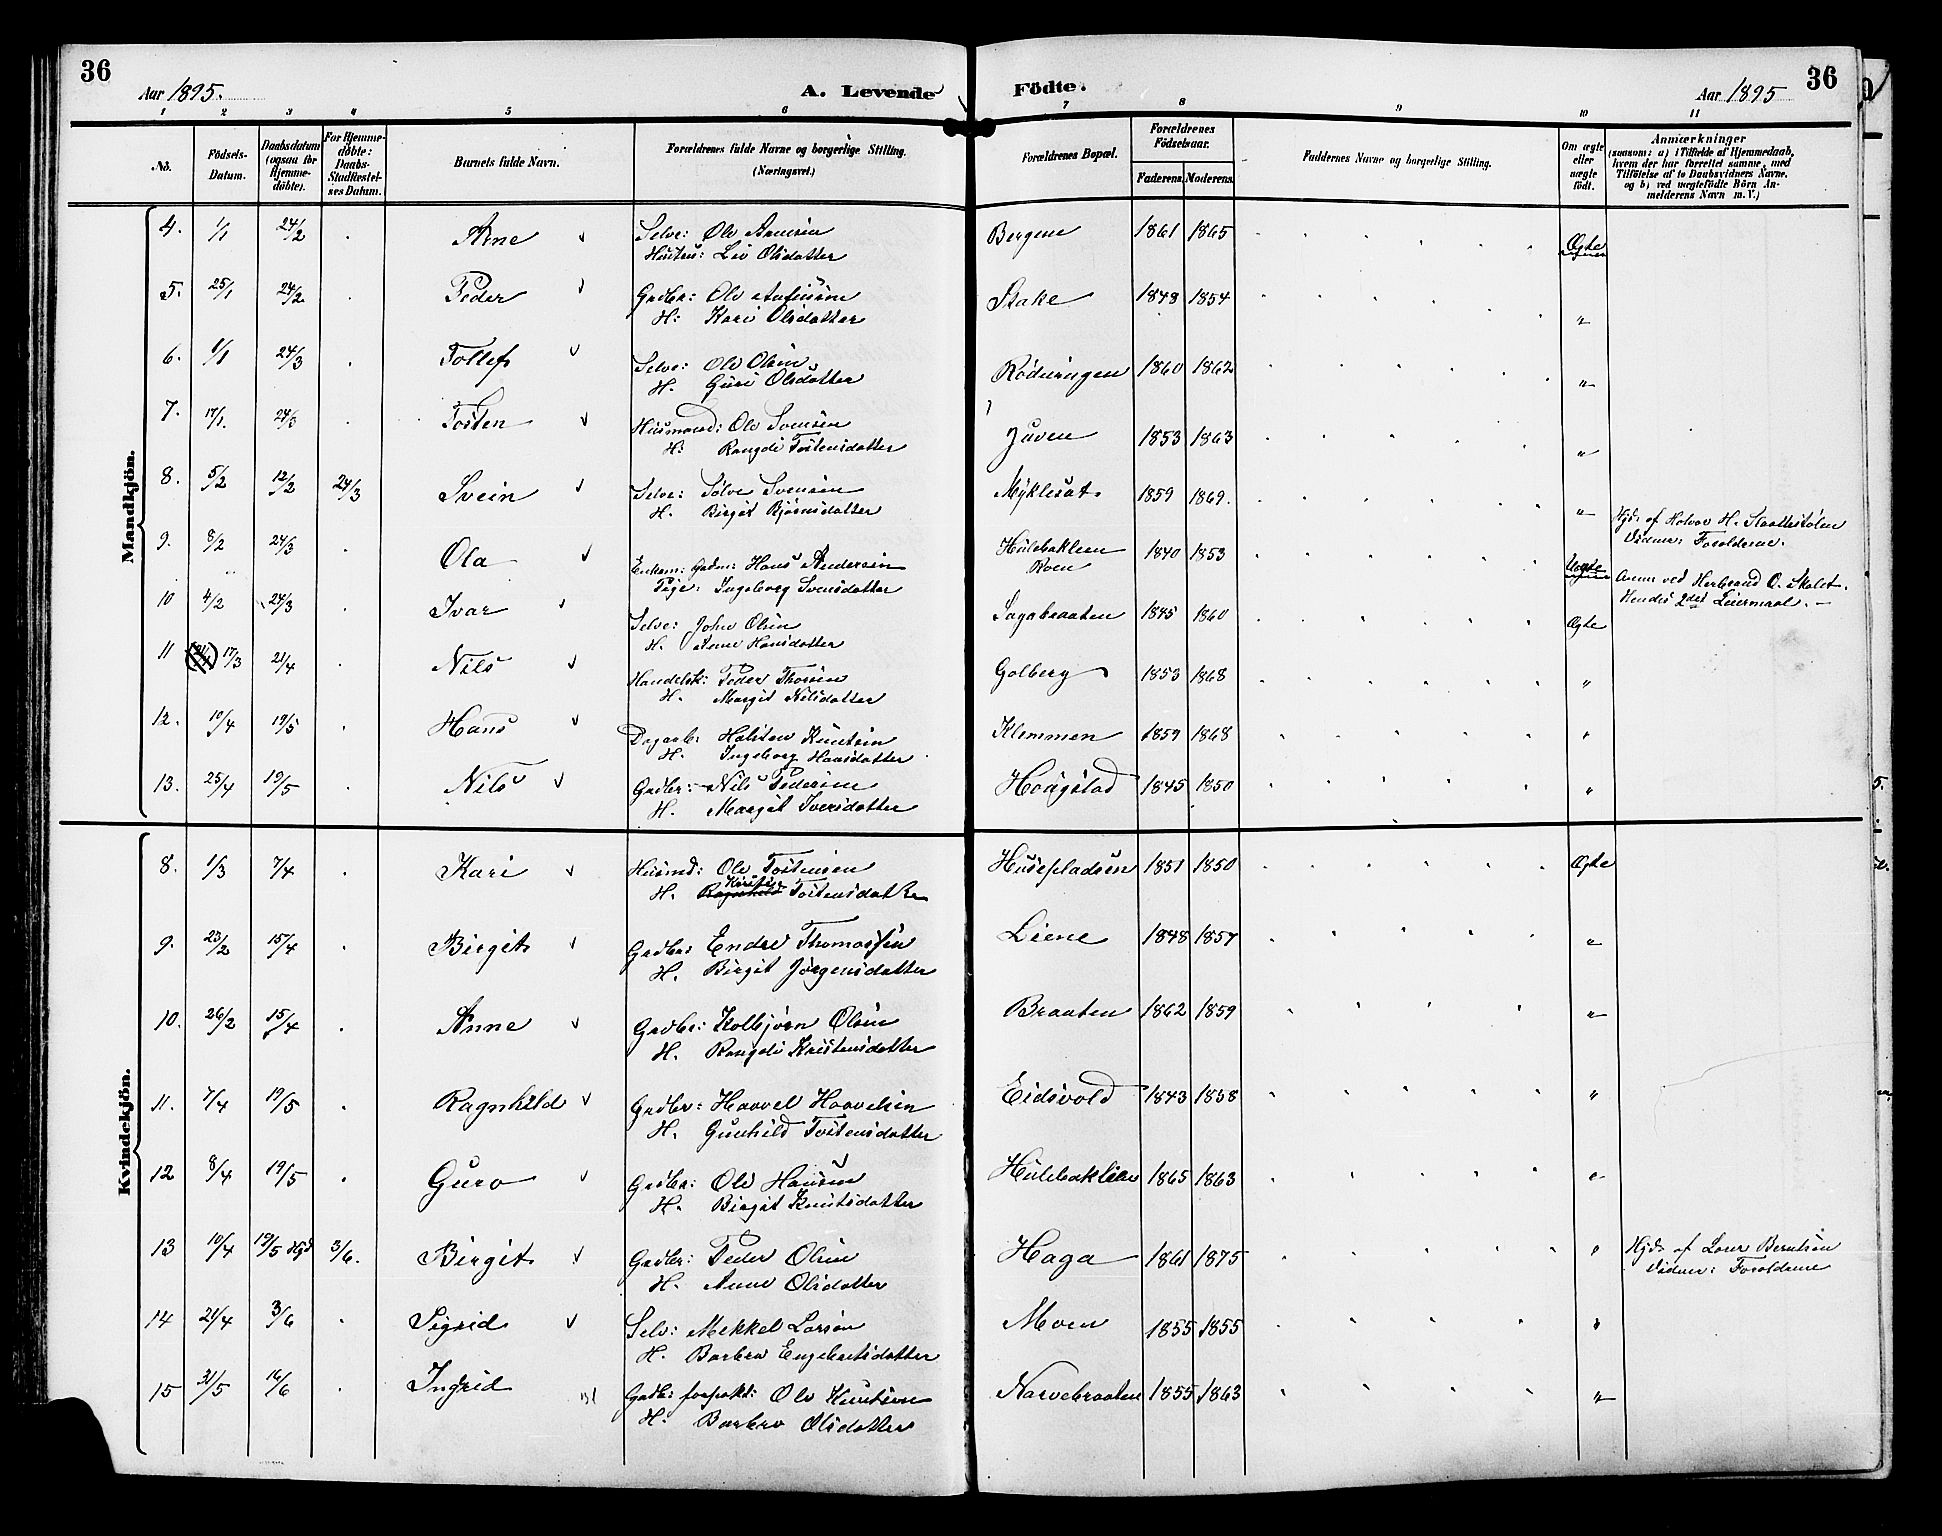 36
Aar 1895.
A. Levende
Födte.
Aar 1895
36
1 2 3 4 5 6 7 8 9 10 11
No.
Födsels-Datum.
Daabsdatum (ogsaa for Hjemmedöbte).
For Hjemmedöbte: Daabs-Stadfæstelses Datum.
Barnets fulde Navn.
Forældrenes fulde Navne og borgerlige Stilling. (Næringsvei.)
Forældrenes Bopæl.
Forældrenes Födselsaar.
Faderens. Moderens.
Faddernes Navne og borgerlige Stilling.
Om ægte eller uægte födt.
Anmærkninger (saasom: a) i Tilfælde af Hjemmedaab, hvem der har forrettet samme, med Tilföielse af to Daabsvidners Navne, og b) ved uægtefödte Börn Anmelderens Navn m. V.)
Mandkjön.
4. 1/1 24/2 Arne Selve: Ole Arnesen Bergene 1861 1865 Ægte
Hustru: Liv Olsdatter
5. 25/1 24/2 Peder Grdbr: Ole Stake 1849 1854 "
H: Kari Olsdatter
6. 1/1 24/3 Tollef Selve: Ole Olsen 1860 1862 "
H. Guri Olsdatter
7. 17/1. 24/3 Tosten Husmand: Ole Svensen Juven 1853 1863 "
H: Rangdi Tostensdatter
8. 5/2 12/2 24/3 Svein Selve: Sølve Svensen 1859 1869. " Hjd. af Halvor H. Slaattestølen
H. Birgit Bjørnsdatter Vidner: Forældrene.
9. 8/2 24/3 Ola Enkem: Gadm: Hans Andersen Hulebakleen 1840 1853 Uægte Anm. ved Herbrand O. Skolet.
Pige: Ingeborg Svensdatter Roen Hendes 2det Leiermaal. —
10 4/2 24/3 Ivar Selve: John Olsen Sagabraaten 1845 1860 Ægte
H. Anne Hansdatter
11 17/3 21/4 Nils Handelsk: Peder Thorsen Golberg 1853 1868 "
H. Margit Nilsdatter
12. 10/4 19/5 Hans Dagarb: Halsten Knutsen Klemmen 1859 1868 "
H. Ingeborg Hansdatter
13. 25/4 19/5 Nils Grdbr: Nils Pedersen Haugstad 1845 1850 "
H. Margit Iversdatter
Kvindekjön.
8. 1/3 7/4 Kari Husmd: Ole Tostensen Husepladsen 1851 1850 Ægte
H. Kristi Tostensdatter
9. 23/2 15/4 Birgit Grdbr: Endre Thomassen Liene 1848 1857 "
H. Birgit Jørgensdatter
10. 26/2 15/4 Anne Grdbr: Kolbjørn Olsen Braaten 1862 1859 "
H. Rangdi Kristensdatter
11. 7/4 19/5 Ragnhild Grdbr: Haavel Haavelsen Eidsvold 1843 1858 "
H. Gunhild Tostensdatter
12 8/4 19/5 Guro Grdbr: Ole Hansen Hulebaklien 1865 1863 "
H. Birgit Knutsdatter
13 10/4 19/5 Hjd 3/6. Birgit Grdbr: Peder Olsen Haga 1861 1875 " Hjd. af Lars Berntsen
H. Anne Olsdatter Vidner: Forældrene
14 21/4 3/6 Sigrid Selv: Mekkel Larsen Moen 1855 1855 "
H. Barbro Engebretsdatter
15 31/5 16/6 Ingrid Gaardbr. forpakt: Ole Knutsen Narvebraaten 1855 1863 "
H. Barbro Olsdatter